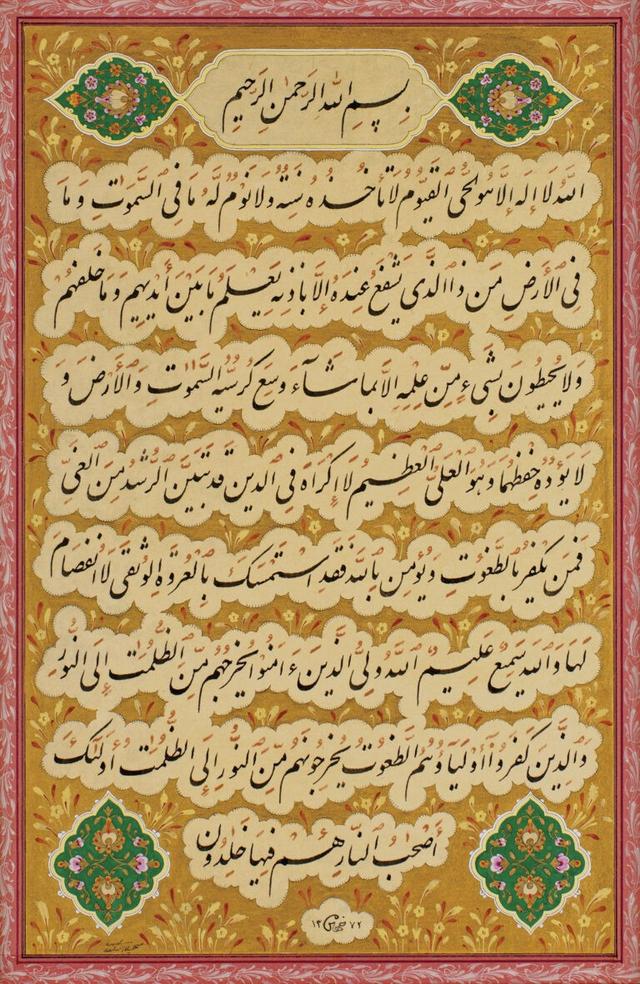 بِسمِ اللهِ الرَّحمٰنِ الرَّحيمِ
اللَّهُ لَا إِلَٰهَ إِلَّا هُوَ الحَىُّ القَيّومُ لا تَأخُذُهُ سِنَةٌ وَلا نَومٌ لَهُ ما فِى السَّمٰوٰتِ وَما
فِى الأَرضِ مَن ذَا الَّذى يَشفَعُ عِندَهُ إِلّا بِإِذنِهِ يَعلَمُ ما بَينَ أَيديهِم وَما خَلفَهُم
وَلا يُحيطونَ بِشَىءٍ مِن عِلمِهِ إِلّا بِما شاءَ وَسِعَ كُرسِيُّهُ السَّمٰوٰتِ وَالأَرضَ وَ
لا يَؤُدُهُ حِفظُهُما وَهُوَ العَلِىُّ العَظيمُ لا إِكراهَ فِى الدّينِ قَد تَبَيَّنَ الرُّشدُ مِنَ الغَىِّ
فَمَن يَكفُر بِالطّٰغوتِ وَيُؤمِن بِاللهِ فَقَدِ استَمسَكَ بِالعُروَةِ الوُثقىٰ لَا انفِصامَ
لَها وَاللهُ سَميعٌ عَليمٌ اللهُ وَلِىُّ الَّذينَ ءامَنوا يُخرِجُهُم مِنَ الظُّلُمٰتِ إِلَى النّورِ
وَالَّذينَ كَفَروا أَولِياؤُهُمُ الطّٰغوتُ يُخرِجونَهُم مِنَ النّورِ إِلَى الظُّلُمٰتِ أُولٰئِكَ
أَصحٰبُ النّارِ هُم فيها خٰلِدونَ